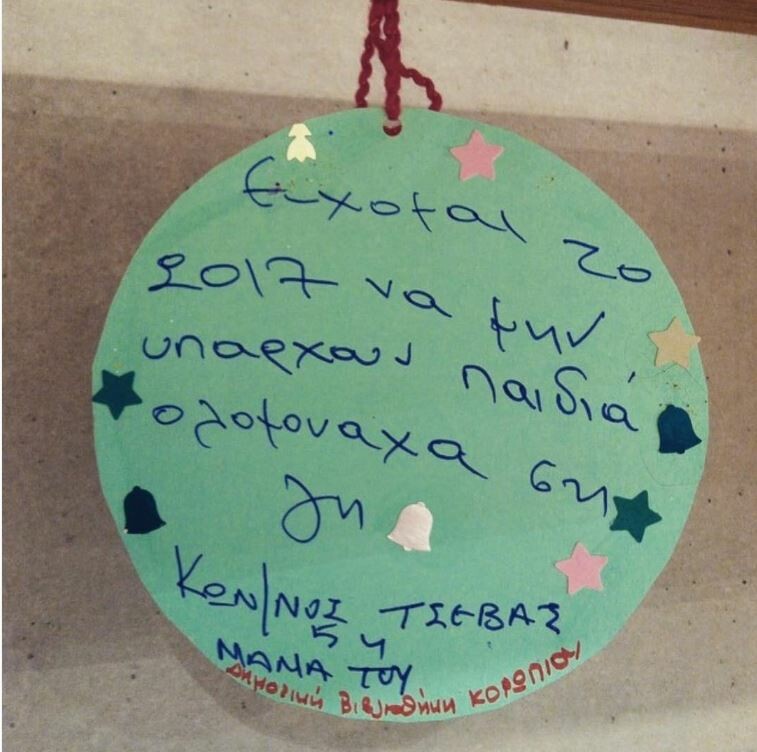 Εύχομαι το
2017 να μην
υπαρχουν παιδιά
ολομοναχα στη
γη
ΚΩΝ/ΝΟΣ ΤΣΕΒΑΣ
5 Y
ΜΑΜΑ ΤΟΥ
Δημοτική Βιβλιοθήκη ΚΟΡΩΠΙΟΥ